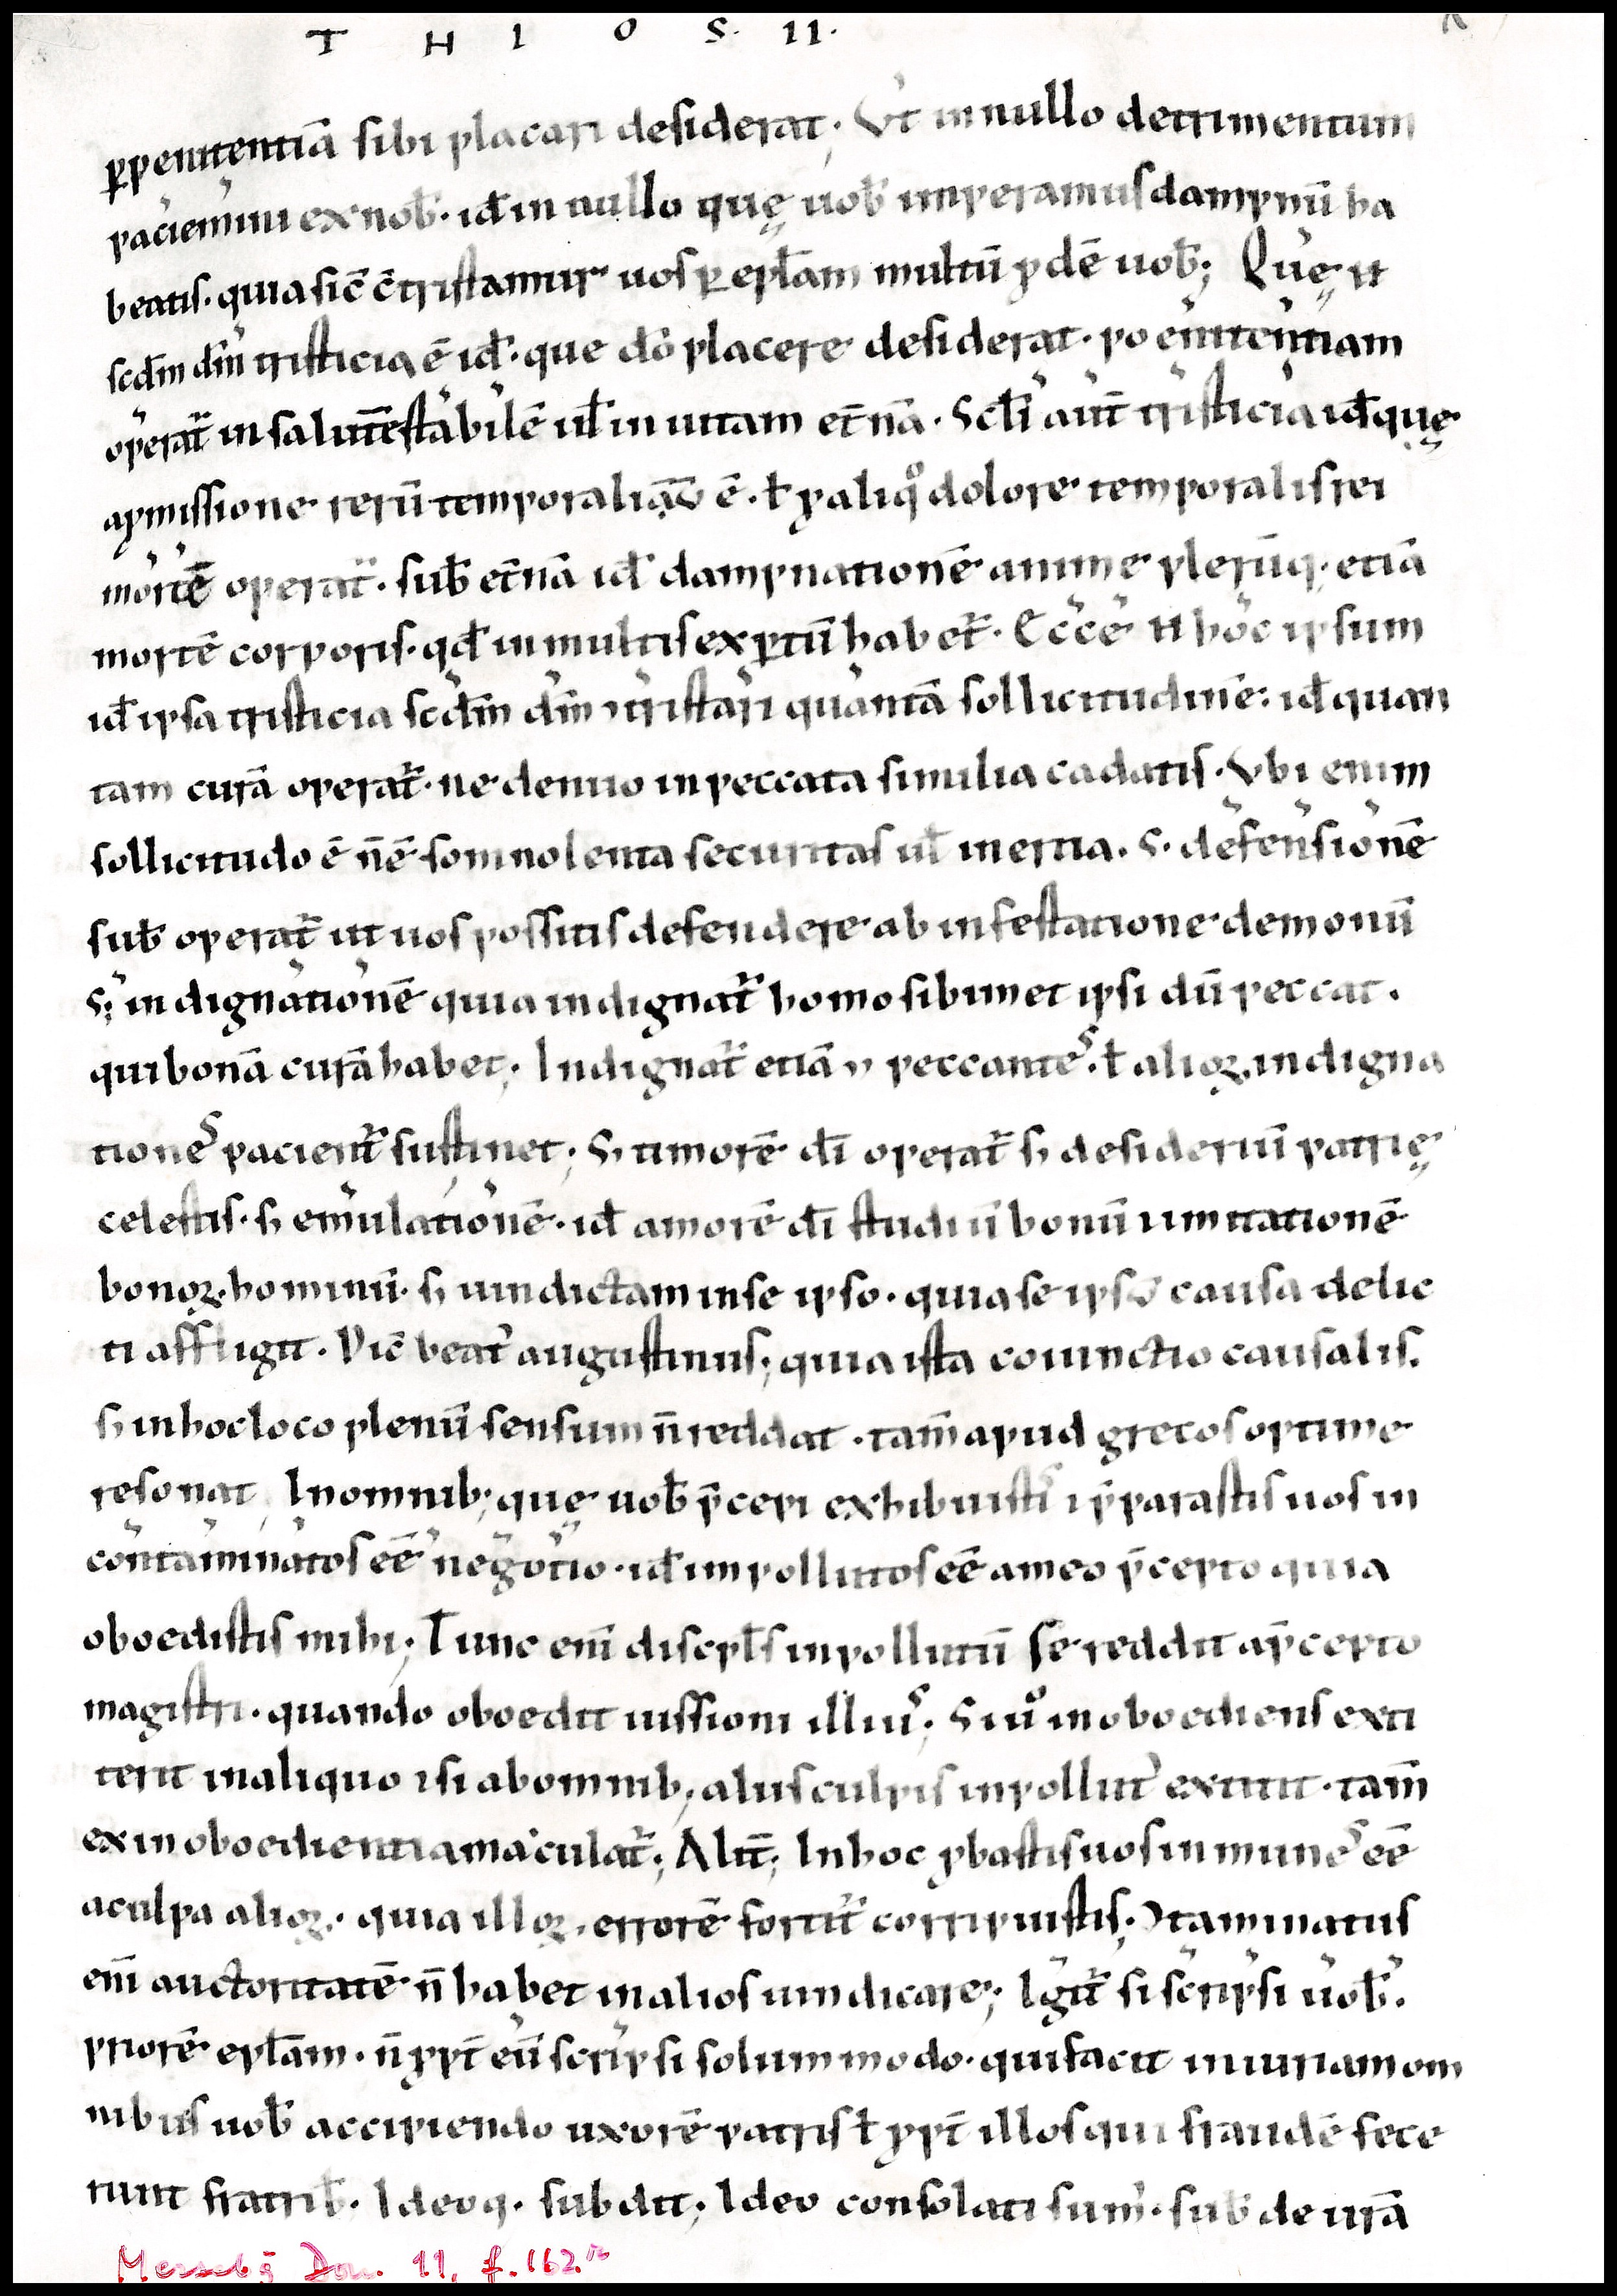 T H I O S. II.
p̱penitentiā sibi placari desiderat; Vt in nullo detrimentum
paciemini ex nob̄. id̄ in nullo quę uob̄ imperamus dampnū ha
beatis. quia sic̄ c̄tristamur uos p̱ epl̄am multū ꝓdē uob̄; Quę n̄
scd̄m dm̄ tristicia ē id̄. que dō placere desiderat. poenitentiam
operat̄ in salutē stabilē ul̄ in uitam et̄nā. Scl̄i aut̄ tristicia id̄ quę
apmissione rerū temporaliū ē. ł ꝓ aliqo dolore temporalis rei
mortē operat̄. sub̄ et̄nā id̄ dampnationē anime plerūq; etiā
mortē corporis. qd̄ in multis exp̱tū habet̄. Ecce n̄ hoc ipsum
id̄ ipsa tristicia scd̄m dm̄ ꝯtristari quantā sollicitudinē: id̄ quan
tam curā operat̄. ne denuo in peccata similia cadatis. Vbi enim
sollicitudo ē n̄ ē somnolenta securitas ul̄ inertia. S. defensionē
sub̄ operat̄ ut uos possitis defendere ab infestatione demonū
S; indignationē quia indignat̄ homo sibimet ipsi dū peccat.
qui bonā curā habet; Indignat̄ etiā ꝯ peccantes. ł alioꝝ indigna
tiones pacient̄ sustinet; S; timorē dī operat̄ s; desideriū patrię
celestis. s; emulationē. id̄ amorē dī studiū bonū imitationē
bonoꝝ hominū. s; uindictam in se ipso. quia se ipsū causa delic
ti affligit. Dic̄ beat' augustinus; quia ista coniunctio causalis.
s; in hoc loco plenū sensum n̄ reddat. tam̄ apud grecos optime
resonat; In omnib; quę uob̄ p̄cepi exhibuistis ⁊ p̄parastis uos in
contaminatos eē negotio. id̄ inpollutos eē a meo p̄cepto quia
oboedistis mihi; Tunc eni̅ discipl̄s inpollutū se reddit a p̄cepto
magistri. quando oboedit iussioni illius; Si ū̊ inoboediens exti
terit in aliquo ⁊ si ab omnib; aliis culpis inpollut' extitit. tam̄
ex inoboedientia maculat̄; Alit̄; In hoc ꝓbastis uos inmunes eē
a culpa alioꝝ. quia illoꝝ errorē fortit̄ corripuistis; Ɔtaminatus
eni̅ auctoritatē n̄ habet in alios uindicare; Igit̄ si scripsi uob̄.
priorē epl̄am. n̄ ꝓpt̄ eū scripsi solummodo. qui facit iniuriam om
nibus uob̄ accipiendo uxorē patris ł ꝓpt̄ illos qui fraudē fece
runt fratrib̄. Ideoq. subdit; Ideo consolati sum'. sub̄ de urā
Merseb̄g Dom. 11, f. 162.ʳ